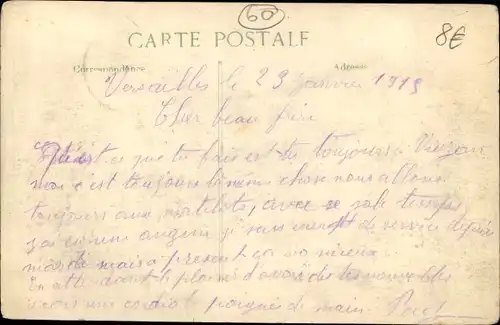 60
8€
CARTE POSTALE
Correspondance
Adresse
Versailles le 23 janvier 1919
Cher beau frère
ce que tu fais es tu toujours a Vierzon
moi c'est toujours la même chose nous allons
toujours aux avec ce sale temps
j'ai eu une angine je suis de service depuis
mais a présent ça va mieux
En attendant le plaisir d'avoir de tes nouvelles
une cordiale poignée de main